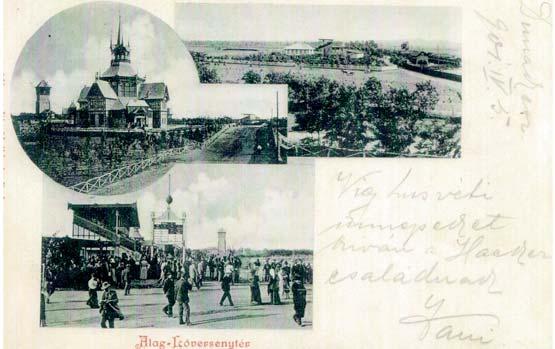 Dunakeszi
901. IV. 5.
Víg húsvéti
ünnepeket
kíván a Haader
családnak
Alag-Lóversenytér